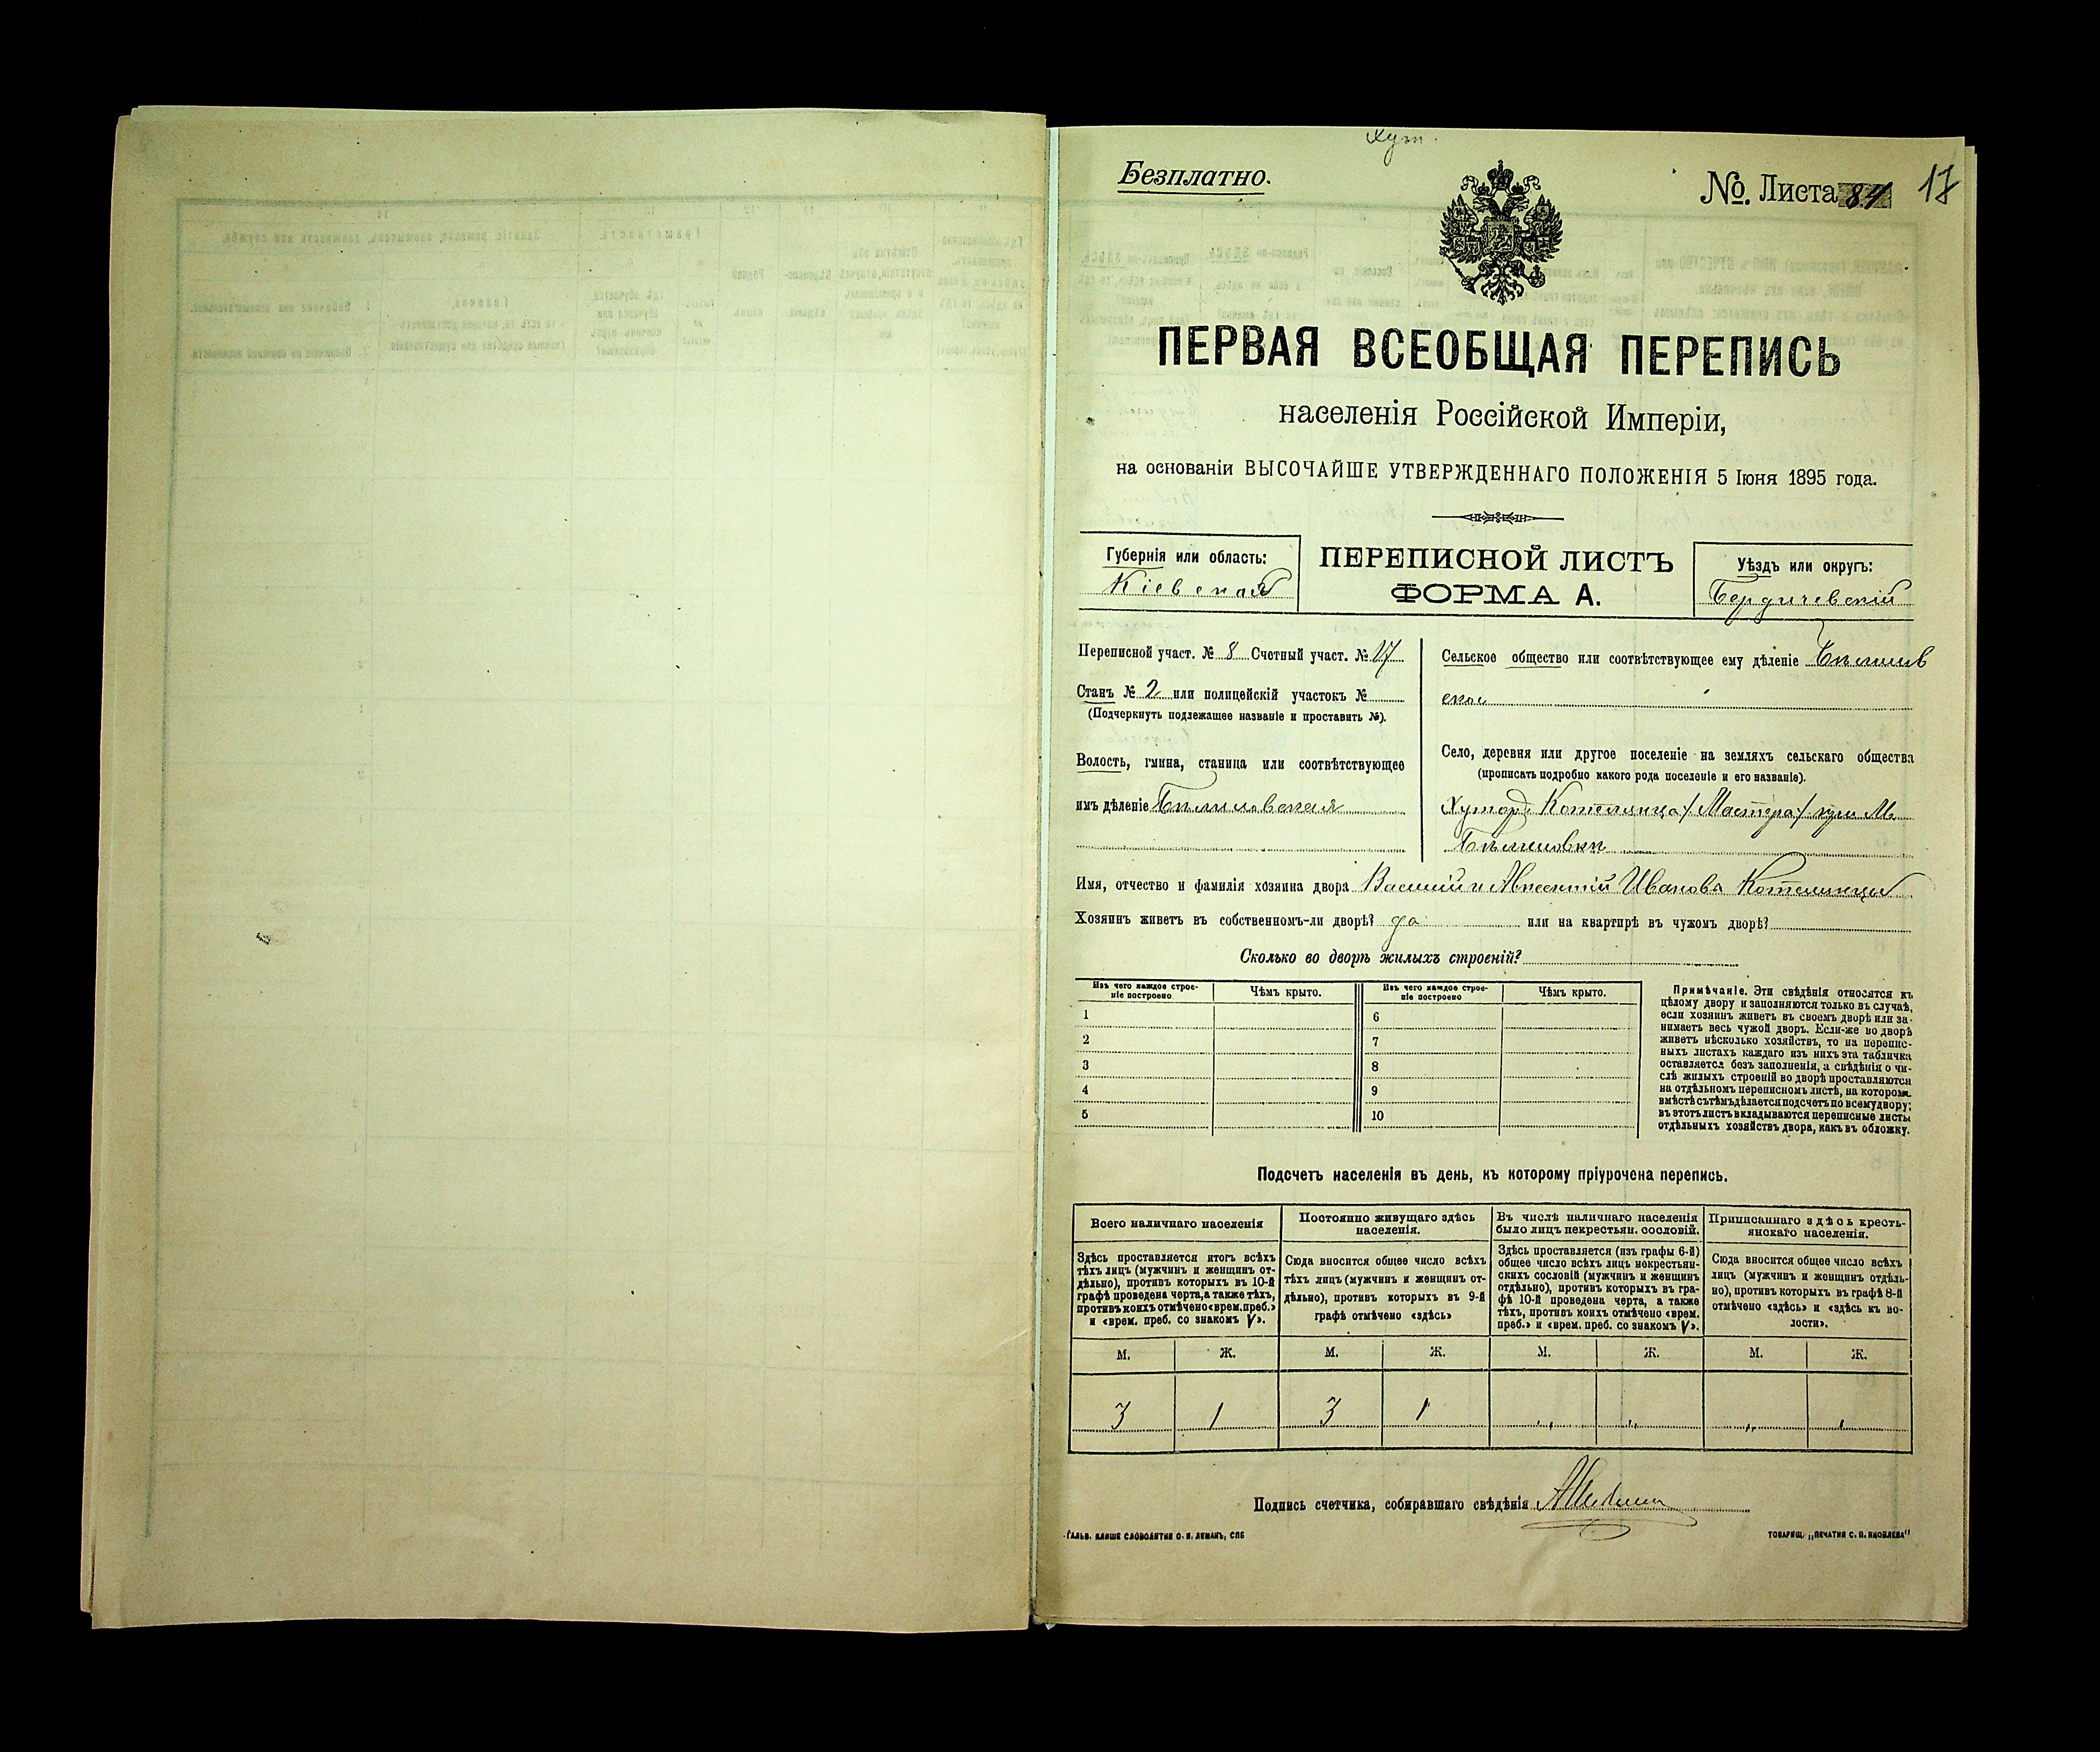 Хут.
Безплатно.
№. Листа 84 17
ПЕРВАЯ ВСЕОБЩАЯ ПЕРЕПИСЬ
населенія Россійской Имперіи,
на основаніи ВЫСОЧАЙШЕ УТВЕРЖДЕННАГО ПОЛОЖЕНІЯ 5 Іюня 1895 года.
Губернія или область:
Кіевская
ПЕРЕПИСНОЙ ЛИСТЪ
ФОРМА А.
Уѣздъ или округъ:
Бердичевскій
Переписной участ. № 8 Счетный участ. № 17
Станъ № 2 или полицейскій участокъ №
(Подчеркнуть подлежащее названіе и проставить №).
Волость, гмина, станица или соотвѣтствующее
имъ дѣленіе Бѣлиловская
Сельское общество или соотвѣтствующее ему дѣленіе Бѣлилов
ское
Село, деревня или другое поселеніе на земляхъ сельскаго общества
(прописать подробно какого рода поселеніе и его названіе).
Хуторъ при М.
Бѣлиловкѣ
Имя, отчество и фамилія хозяина двора Василій и Ивановы
Хозяинъ живетъ въ собственномъ-ли дворѣ? да или на квартирѣ въ чужомъ дворѣ?
Сколько во дворѣ жилыхъ строеній?
Изъ чего каждое строе-
ніе построено
Чѣмъ крыто.
Изъ чего каждое строе-
ніе построено
Чѣмъ крыто.
1 6
2 7
3 8
4 9
5 10
Примѣчаніе. Эти свѣдѣнія относятся къ
цѣлому двору и заполняются только въ случаѣ,
если хозяинъ живетъ въ своемъ дворѣ или за-
нимаетъ весь чужой дворъ. Если-же во дворѣ
живетъ нѣсколько хозяйствъ, то на перепис-
ныхъ листахъ каждаго изъ нихъ эта табличка
оставляется безъ заполненія, а свѣдѣнія о чи-
слѣ жилыхъ строеній во дворѣ проставляются
на отдѣльномъ переписномъ листѣ, на которомъ
вмѣстѣ съ тѣмъ дѣлается подсчетъ по всему двору;
въ этотъ листъ вкладываются переписные листы
отдѣльныхъ хозяйствъ двора, какъ въ обложку.
Подсчетъ населенія въ день, къ которому пріурочена перепись.
Всего наличнаго населенія
Здѣсь проставляется итогъ всѣхъ
тѣхъ лицъ (мужчинъ и женщинъ от-
дѣльно), противъ которыхъ въ 10-й
графѣ проведена черта, а также тѣхъ,
противъ коихъ отмѣчено «врем. преб.»
и «врем. преб. со знакомъ V».
Постоянно живущаго здѣсь
населенія.
Сюда вносится общее число всѣхъ
тѣхъ лицъ (мужчинъ и женщинъ от-
дѣльно), противъ которыхъ въ 9-й
графѣ отмѣчено «здѣсь»
Въ числѣ наличнаго населенія
было лицъ некрестьян. сословій.
Здѣсь проставляется (изъ графы 6-й)
общее число всѣхъ лицъ некрестьян-
скихъ сословій (мужчинъ и женщинъ
отдѣльно), противъ которыхъ въ гра-
фѣ 10-й проведена черта, а также
тѣхъ, противъ коихъ отмѣчено «врем.
преб.» и «врем. преб. со знакомъ V».
Приписаннаго здѣсь кресть-
янскаго населенія.
Сюда вносится общее число всѣхъ
лицъ (мужчинъ и женщинъ отдѣль-
но), противъ которыхъ въ графѣ 8-й
отмѣчено «здѣсь» и «здѣсь къ во-
лости».
М. Ж. М. Ж. М. Ж. М. Ж.
3 1 3 1 „ „ „ „
Подпись счетчика, собиравшаго свѣдѣнія
ГАЛЬВ. КЛИШЕ СЛОВОЛИТНИ О. И. ЛЕМАНЪ, СПБ
ТОВАРИЩ. „ПЕЧАТНЯ С. П. ЯКОВЛЕВА"